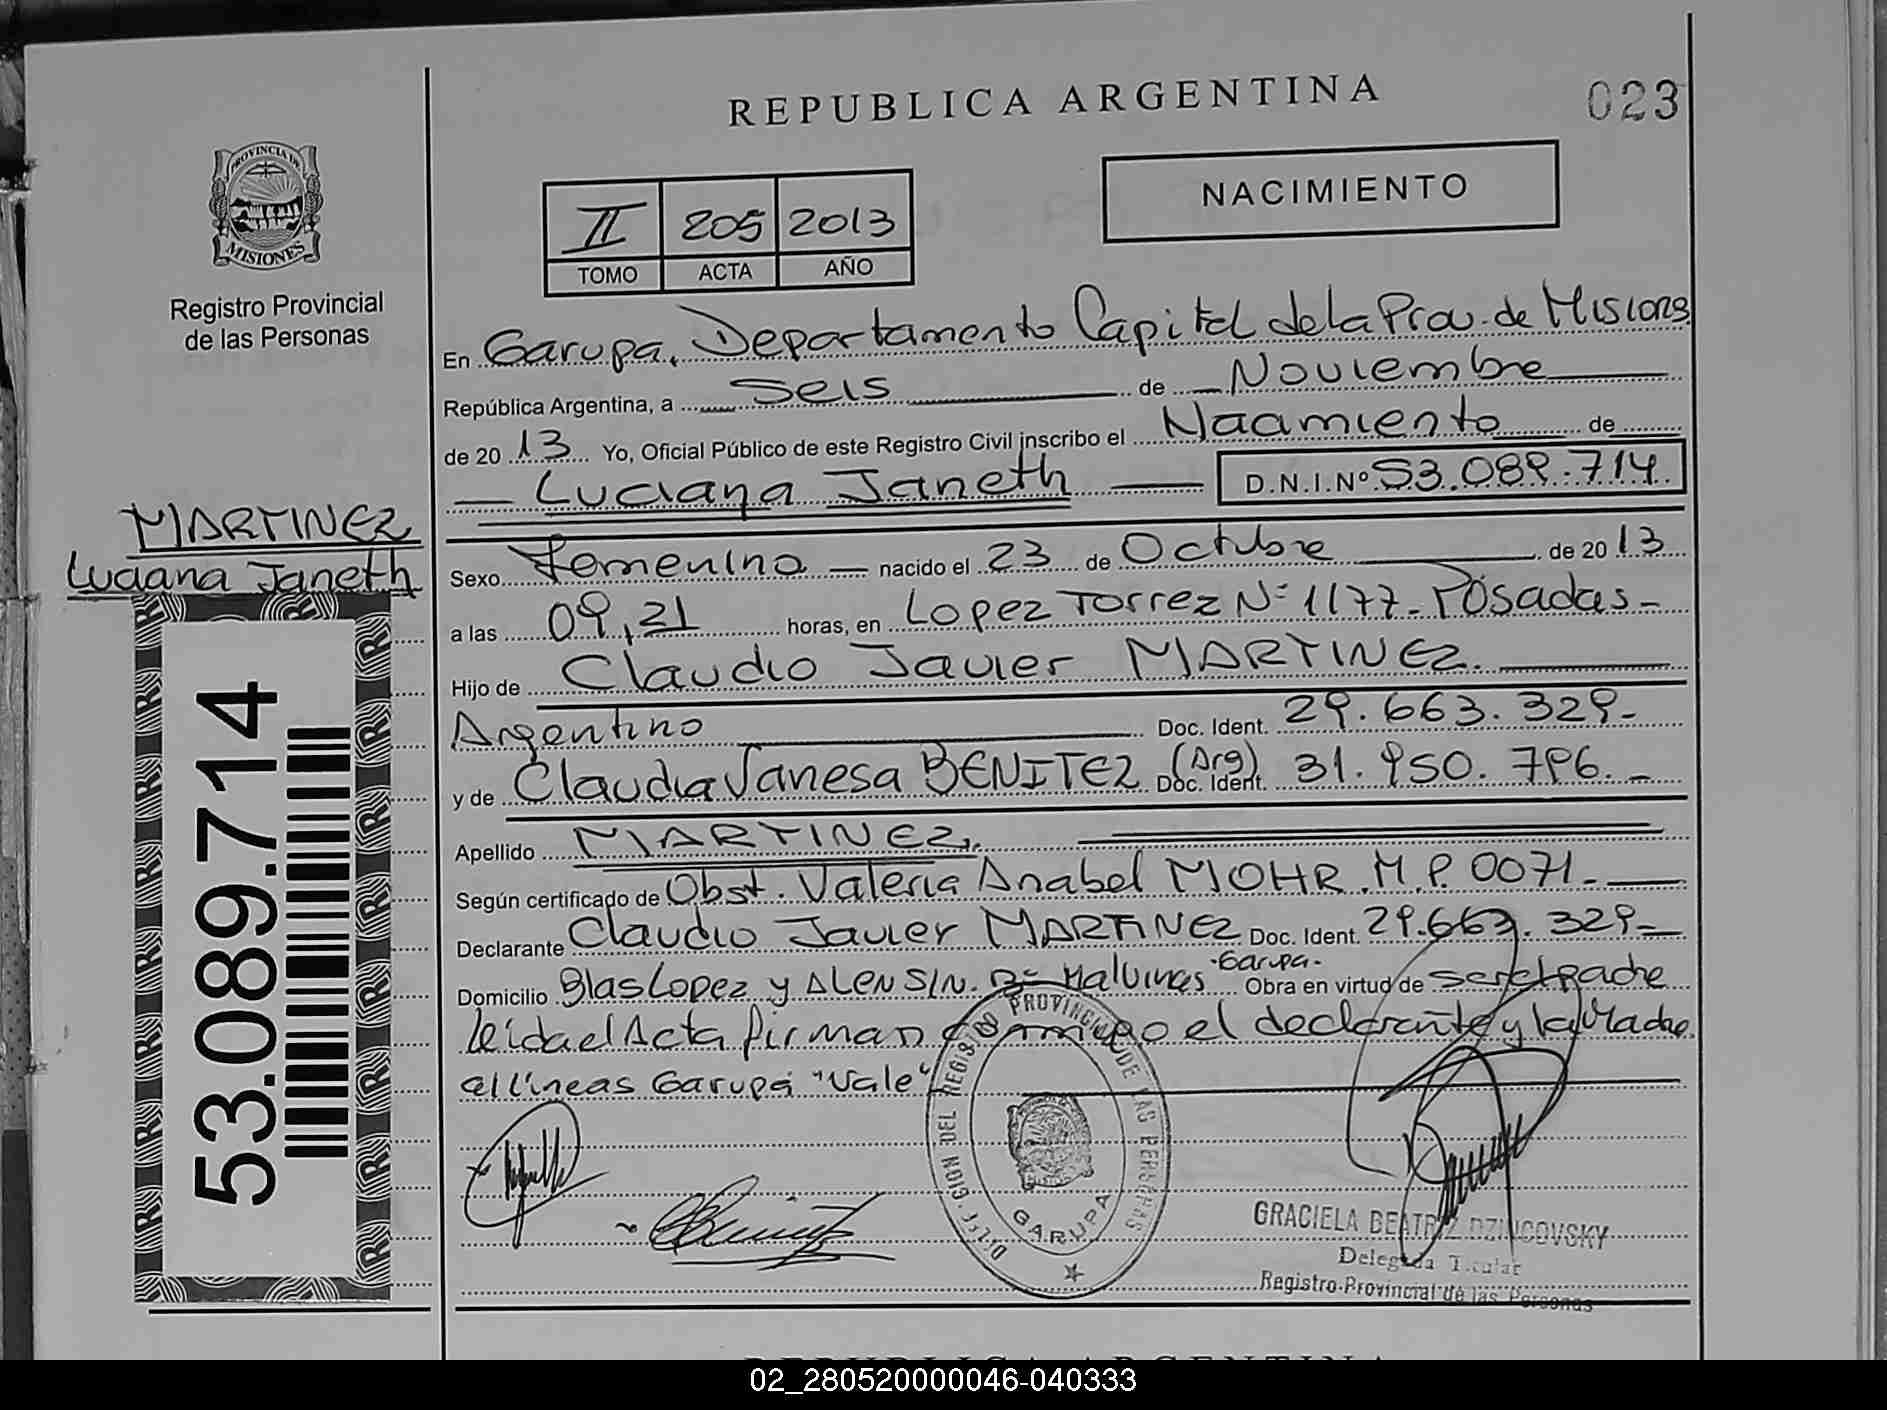 REPUBLICA ARGENTINA
023
PROVINCIA DE
MISIONES
Registro Provincial
de las Personas
II 205 2013
TOMO ACTA AÑO
NACIMIENTO
En Garupa, Departamento Capital de la Prov. de Misiones
República Argentina, a Seis de Noviembre
de 2013 Yo, Oficial Público de este Registro Civil inscribo el Nacimiento de
Luciana Janeth D.N.I.Nº 53.089.714.
MARTINEZ
Luciana Janeth
53.089.714
Sexo Femenino nacido el 23 de Octubre de 2013
a las 09,21 horas, en Lopez Torrez Nº 1177 - Posadas -
Hijo de Claudio Javier MARTINEZ.
Argentino Doc. Ident. 29.663.329-
y de Claudia Vanesa BENITEZ (Arg) Doc. Ident. 31.950.796.-
Apellido MARTINEZ.
Según certificado de Obst. Valeria Anabel MOHR. M.P. 0071-
Declarante Claudio Javier MARTINEZ Doc. Ident. 29.663.329-
Domicilio Blas Lopez y ALEN S/N. Bº Malvinas -Garupa- Obra en virtud de ser el padre
leida el Acta firman conmigo el declarante y la Madre.
e/lineas Garupá "Vale"
DELEGACION DEL REGISTRO PROVINCIAL DE LAS PERSONAS
GARUPA
GRACIELA BEATRIZ DZINCOVSKY
Delegada Titular
Registro Provincial de las Personas
REPUBLICA ARGENTINA
02_280520000046-040333